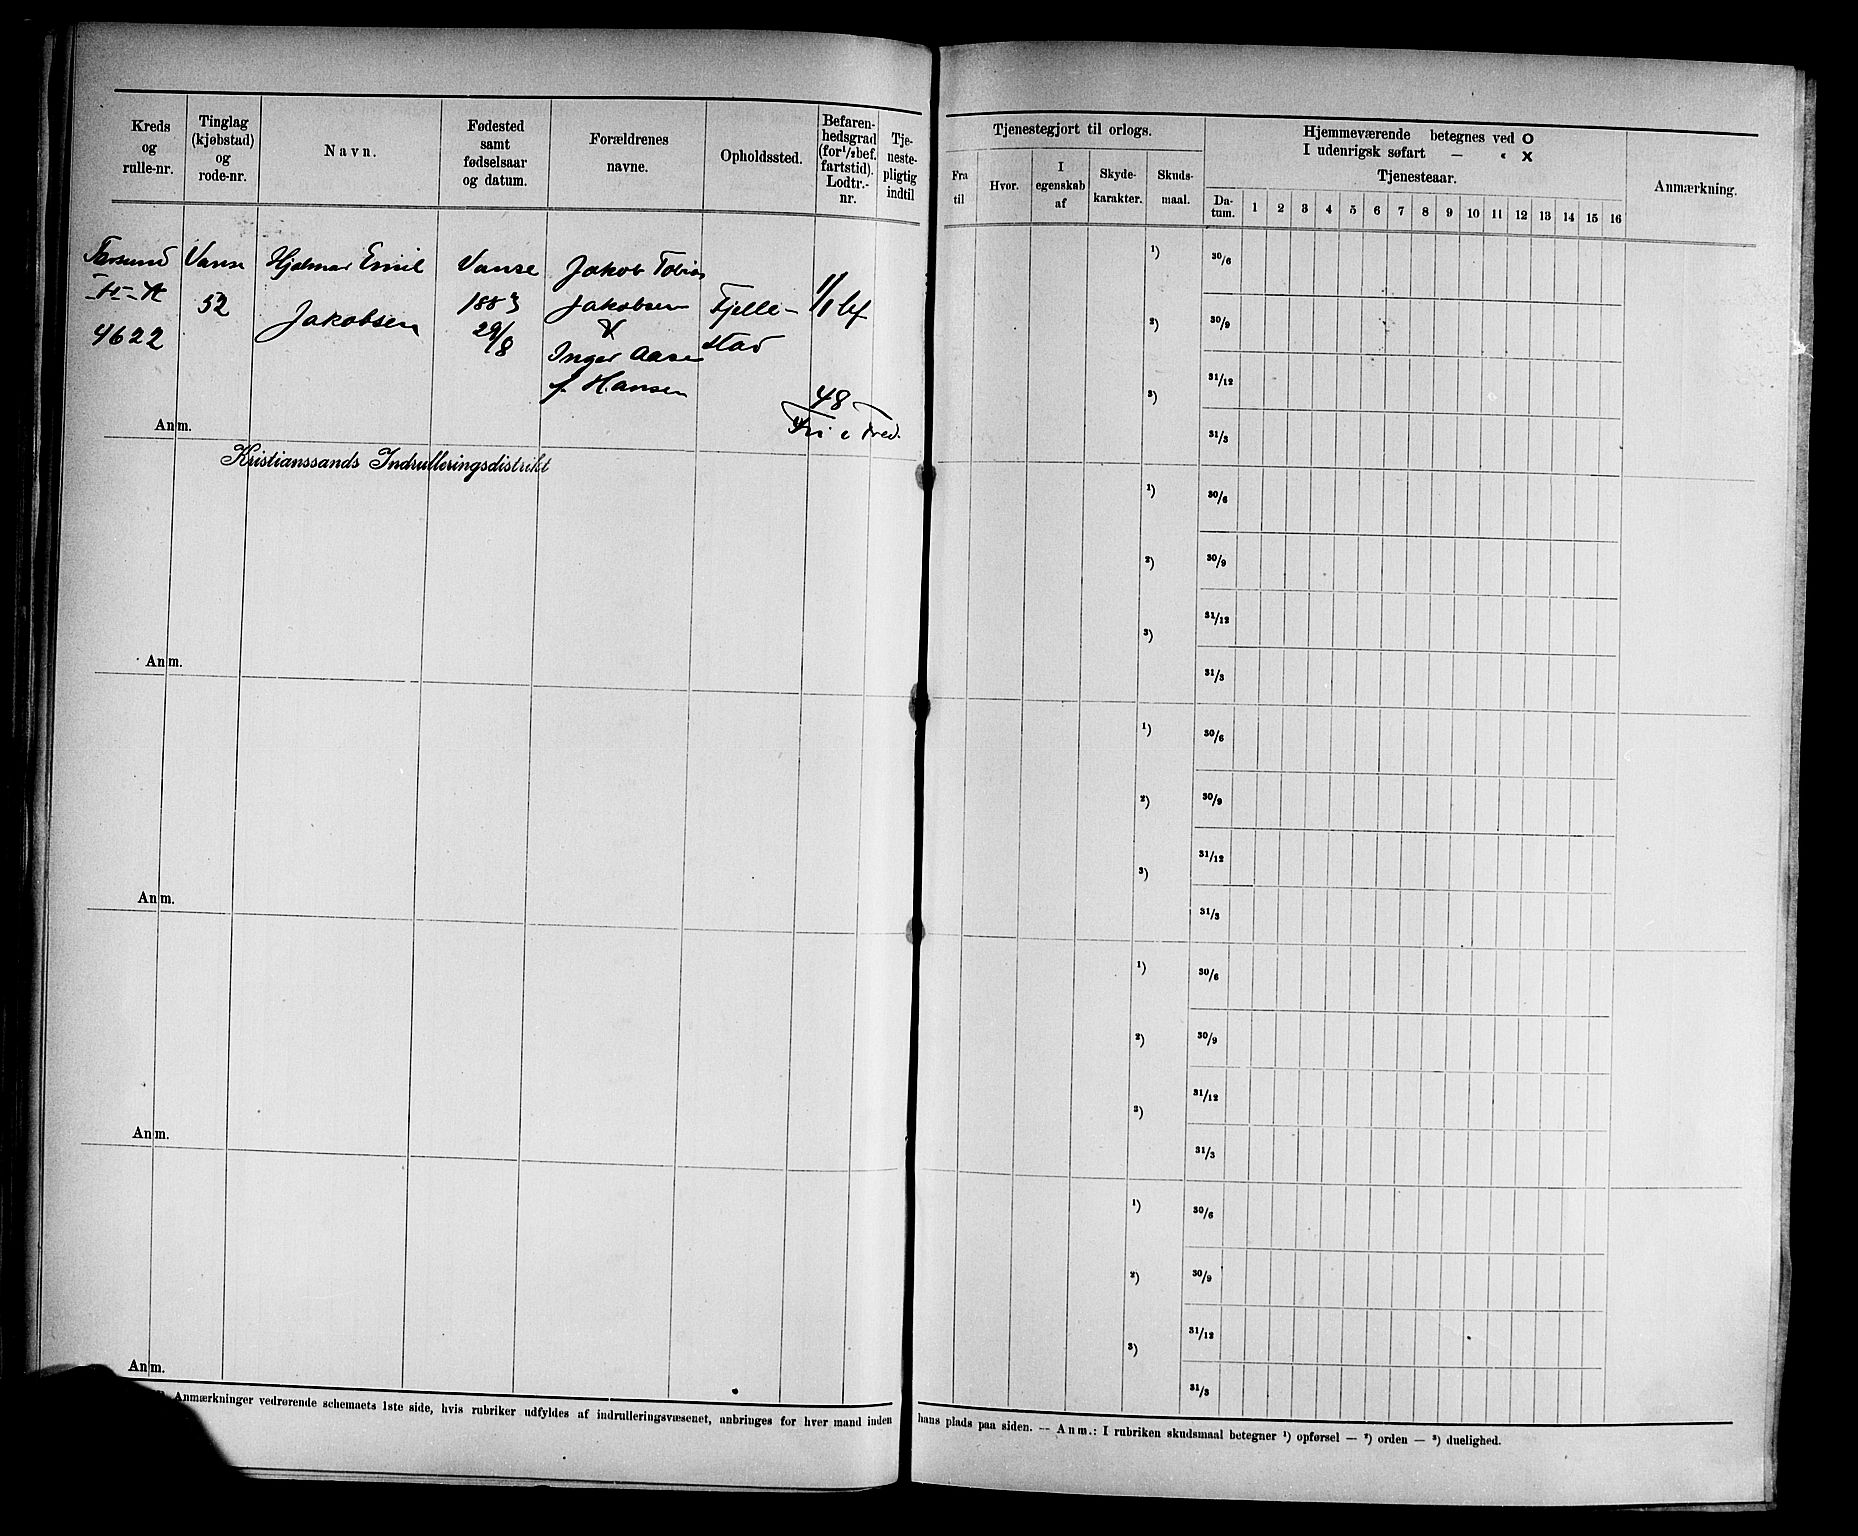 Kreds
og
rulle-nr.
Tinglag
(kjøbstad)
og
rode-nr.
Navn.
Fødested
samt
fødselsaar
og datum.
Forældrenes
navne.
Opholdssted.
Befaren-
hedsgrad
(for ½ bef.
fartstid).
Lodtr.-
nr.
Tje-
neste-
pligtig
indtil
Farsund
4622
Vanse
52
Hjalmar Emil
Jakobsen
Vanse
1883
29/8
Jakob Tobias
Jakobsen
Inger Aase
f. Hansen
Fjelle-
stad
1/1 bef
48
Fri i Fred.
Anm.
Kristianssands Indrulleringsdistrikt
Anm.
Anm.
Anm.
Anm.
Anmærkninger vedrørende schemaets 1ste side, hvis rubriker udfyldes af indrulleringsvæsenet, anbringes for hver mand inden
Tjenestegjort til orlogs.
Fra
til
Hvor.
I
egenskab
af
Skyde-
karakter.
Skuds-
maal.
Hjemmeværende betegnes ved O
I udenrigsk søfart — " X
Tjenesteaar.
Da-
tum.
1 2 3 4 5 6 7 8 9 10 11 12 13 14 15 16
Anmærkning.
1) 30/6
2) 30/9
31/12
3)
31/3
1) 30/6
2) 30/9
31/12
3)
31/3
1) 30/6
2) 30/9
31/12
3)
31/3
1) 30/6
2) 30/9
31/12
3)
31/3
1) 30/6
2) 30/9
31/12
3)
31/3
hans plads paa siden. — Anm.: I rubriken skudsmaal betegner 1) opførsel — 2) orden — 3) duelighed.